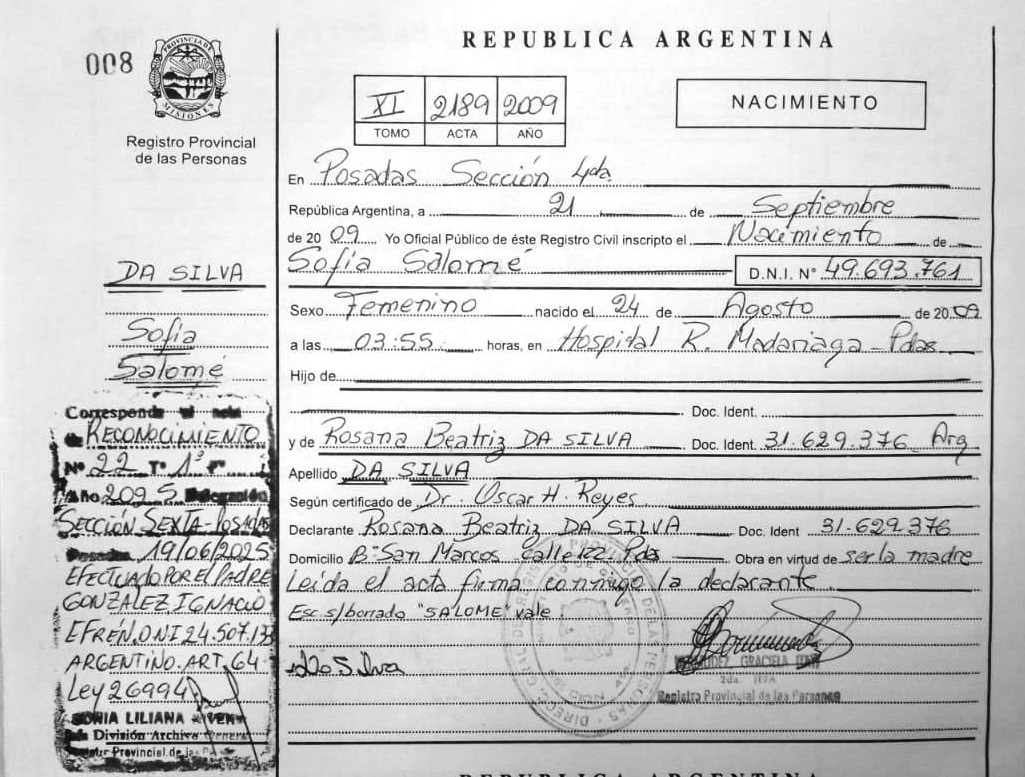 REPUBLICA ARGENTINA
008
PROVINCIA DE MISIONES
Registro Provincial
de las Personas
XI 2189 2009
TOMO ACTA AÑO
NACIMIENTO
En Posadas Sección 4ta
República Argentina, a 21 de Septiembre
de 20 09 Yo Oficial Público de éste Registro Civil inscripto el Nacimiento de
Sofía Salomé D.N.I. N° 49.693.761
Sexo Femenino nacido el 24 de Agosto de 20 09
a las 03:55 horas, en Hospital R. Madariaga - Pdas
Hijo de
Doc. Ident.
y de Rosana Beatriz DA SILVA Doc. Ident. 31.629.376 Arg
Apellido DA SILVA
Según certificado de Dr. Oscar H. Reyes
Declarante Rosana Beatriz DA SILVA Doc. Ident 31-629-376
Domicilio B° San Marcos Calle 122 Pdas Obra en virtud de ser la madre
Leída el acta firma conmigo la declarante
Esc. s/borrado "SALOME" vale
GRACIELA
2da. JEFA
Registro Provincial de las Personas
DA SILVA
Sofía
Salomé
Corresponde al acta
de RECONOCIMIENTO
N° 22 T° 1° F°
Año Delegación
SECCIÓN SEXTA - POSADAS
Posadas 19/06/2025
EFECTUADO POR EL PADRE
GONZALEZ, IGNACIO
EFRÉN, D.N.I 24.507.13
ARGENTINO. ART. 64
Ley 26994
SONIA LILIANA
División Archivo General
Registro Provincial de las
REPUBLICA ARGENTINA